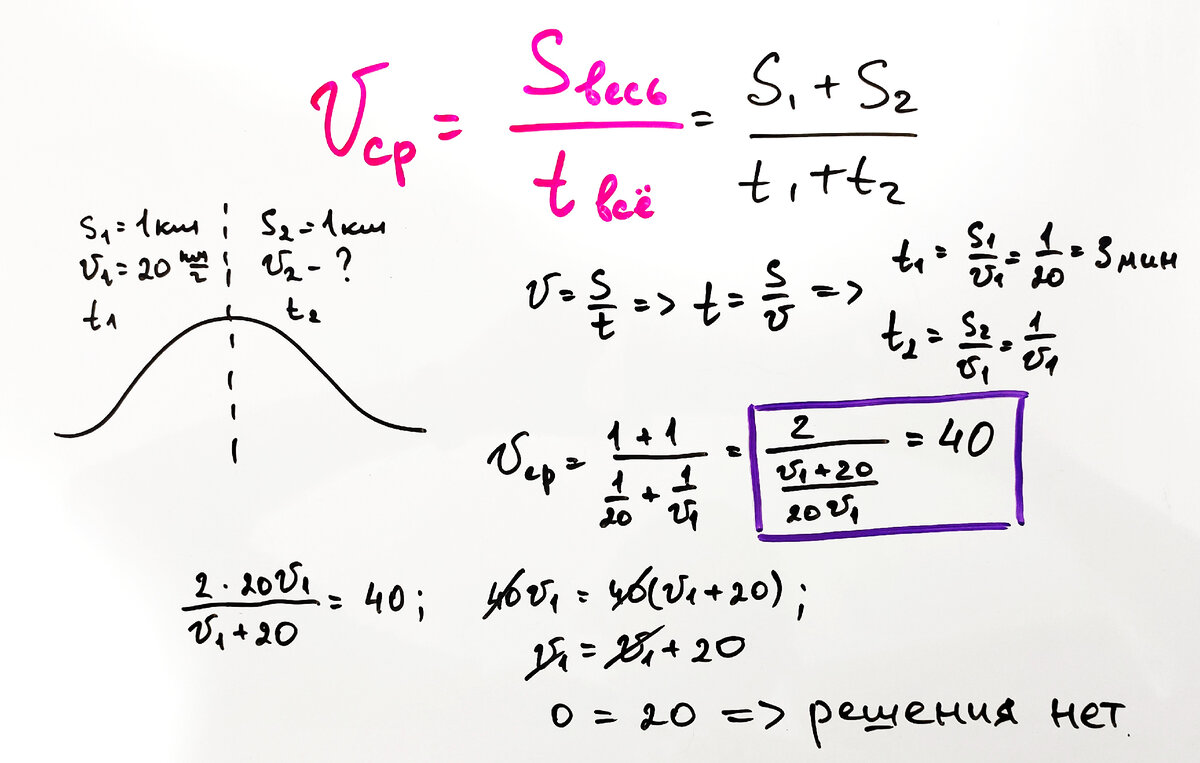 υср = Sвесь / t всё = S₁ + S₂ / t₁ + t₂
S₁ = 1км
υ₁ = 20 км/ч
t₁
S₂ = 1км
υ₂ - ?
t₂
υ = S/t => t = S/υ =>
t₁ = S₁/υ₁ = 1/20 = 3 мин
t₂ = S₂/υ₁ = 1/υ₁
υср = (1 + 1)/(1/20 + 1/υ₁) = 2/((υ₁ + 20)/(20υ₁)) = 40
2 · 20υ₁/(υ₁ + 20) = 40; 40υ₁ = 40(υ₁ + 20);
υ₁ = υ₁ + 20
0 = 20 => решения нет.